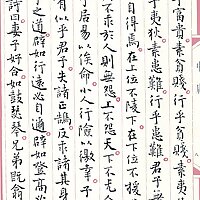 乎富貴素貧賤行乎貧賤素夷
乎夷狄素患難行乎患難君子
自得焉在上位不陵下在下位不援
不求於人則無怨上不怨天下不尤
子居易以俟命小人行險以徼幸子
有似乎君子失諸正鵠反求諸其身
子之道辟如行遠必自邇辟如登高必
詩曰妻子好合如鼓瑟琴兄弟既翕